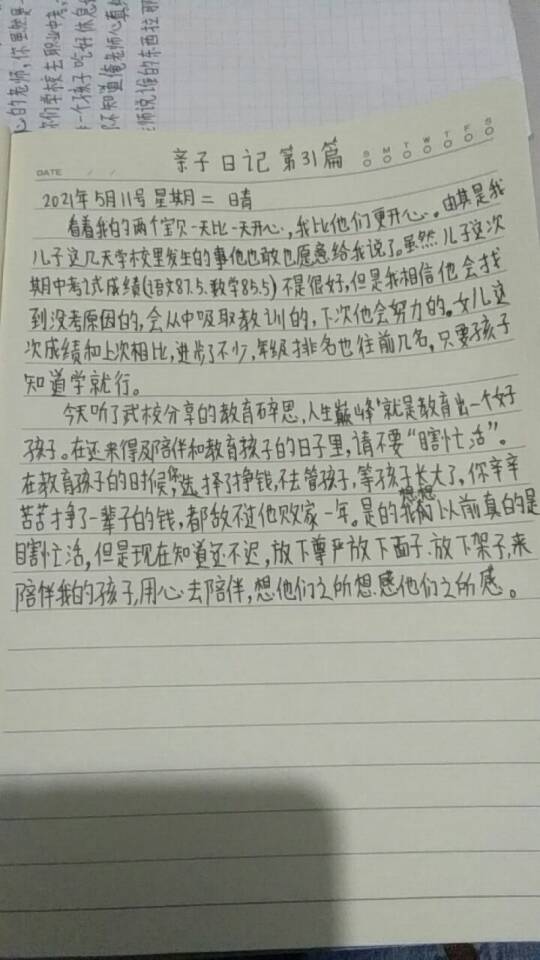 心的老师,你虽然是
你们学校去职业中考
一个孩子吃好休息
不知道俺老师心真
师说谁的东西拉那
亲子日记 第31篇
S M T W T F S
DATE / /
2021年5月11号 星期二 晴
看着我的两个宝贝一天比一天开心,我比他们更开心。由其是我
儿子这几天学校里发生的事他也敢也愿意给我说了。虽然儿子这次
期中考试成绩(语文87.5.数学85.5)不是很好,但是我相信他会找
到没考原因的,会从中吸取教训的,下次他会努力的。女儿这
次成绩和上次相比,进步了不少,年级排名也往前几名,只要孩子
知道学就行。
今天听了武校分享的教育碎思,人生巅峰'就是教育出一个好
孩子。在还来得及陪伴和教育孩子的日子里,请不要“瞎忙活”。
在教育孩子的时候,您选择了挣钱,不去管孩子,等孩子长大了,你辛辛
苦苦挣了一辈子的钱,都敌不过他败家一年。是的我想想我们以前真的是
瞎忙活,但是现在知道还不迟,放下尊严放下面子.放下架子,来
陪伴我的孩子,用心去陪伴,想他们之所想.感他们之所感。